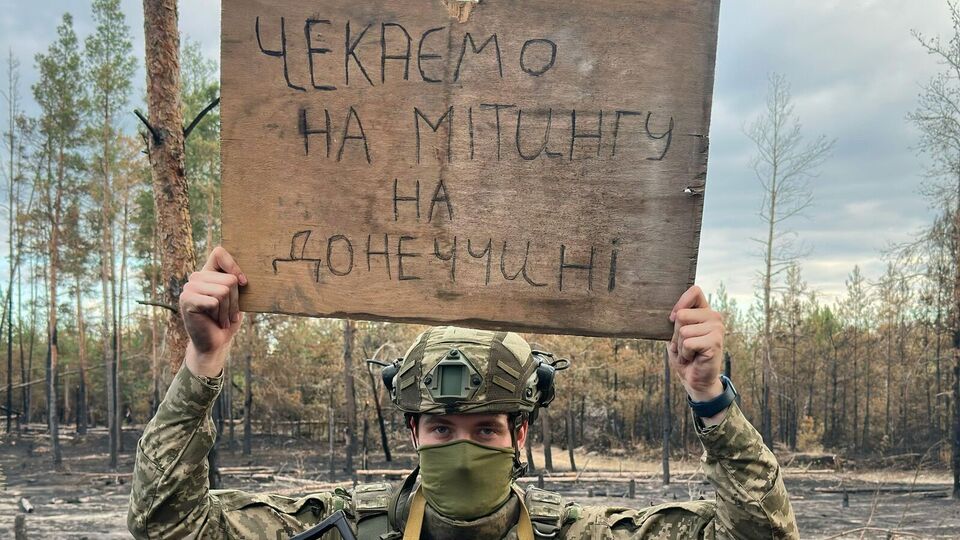 ЧЕКАЄМО
НА МІТИНГУ
НА
ДОНЕЧЧИНІ